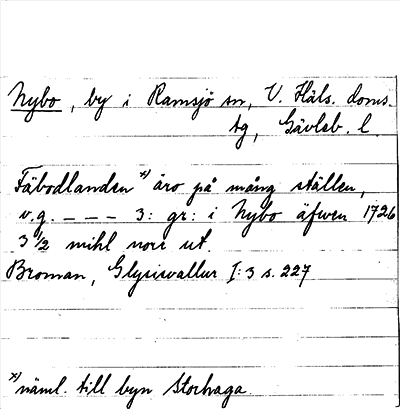 Nybo, by i Ramsjö sn, V. Häls. doms.
tg, Gävleb. l.
Fäbodlanden x) äro på mång ställen,
v.g. _ _ _ 3: gr: i Nybo äfwen 1726
3 1/2 mihl norr ut.
Broman, Glysisvallur I:3 s. 227
x) näml. till byn Storhaga